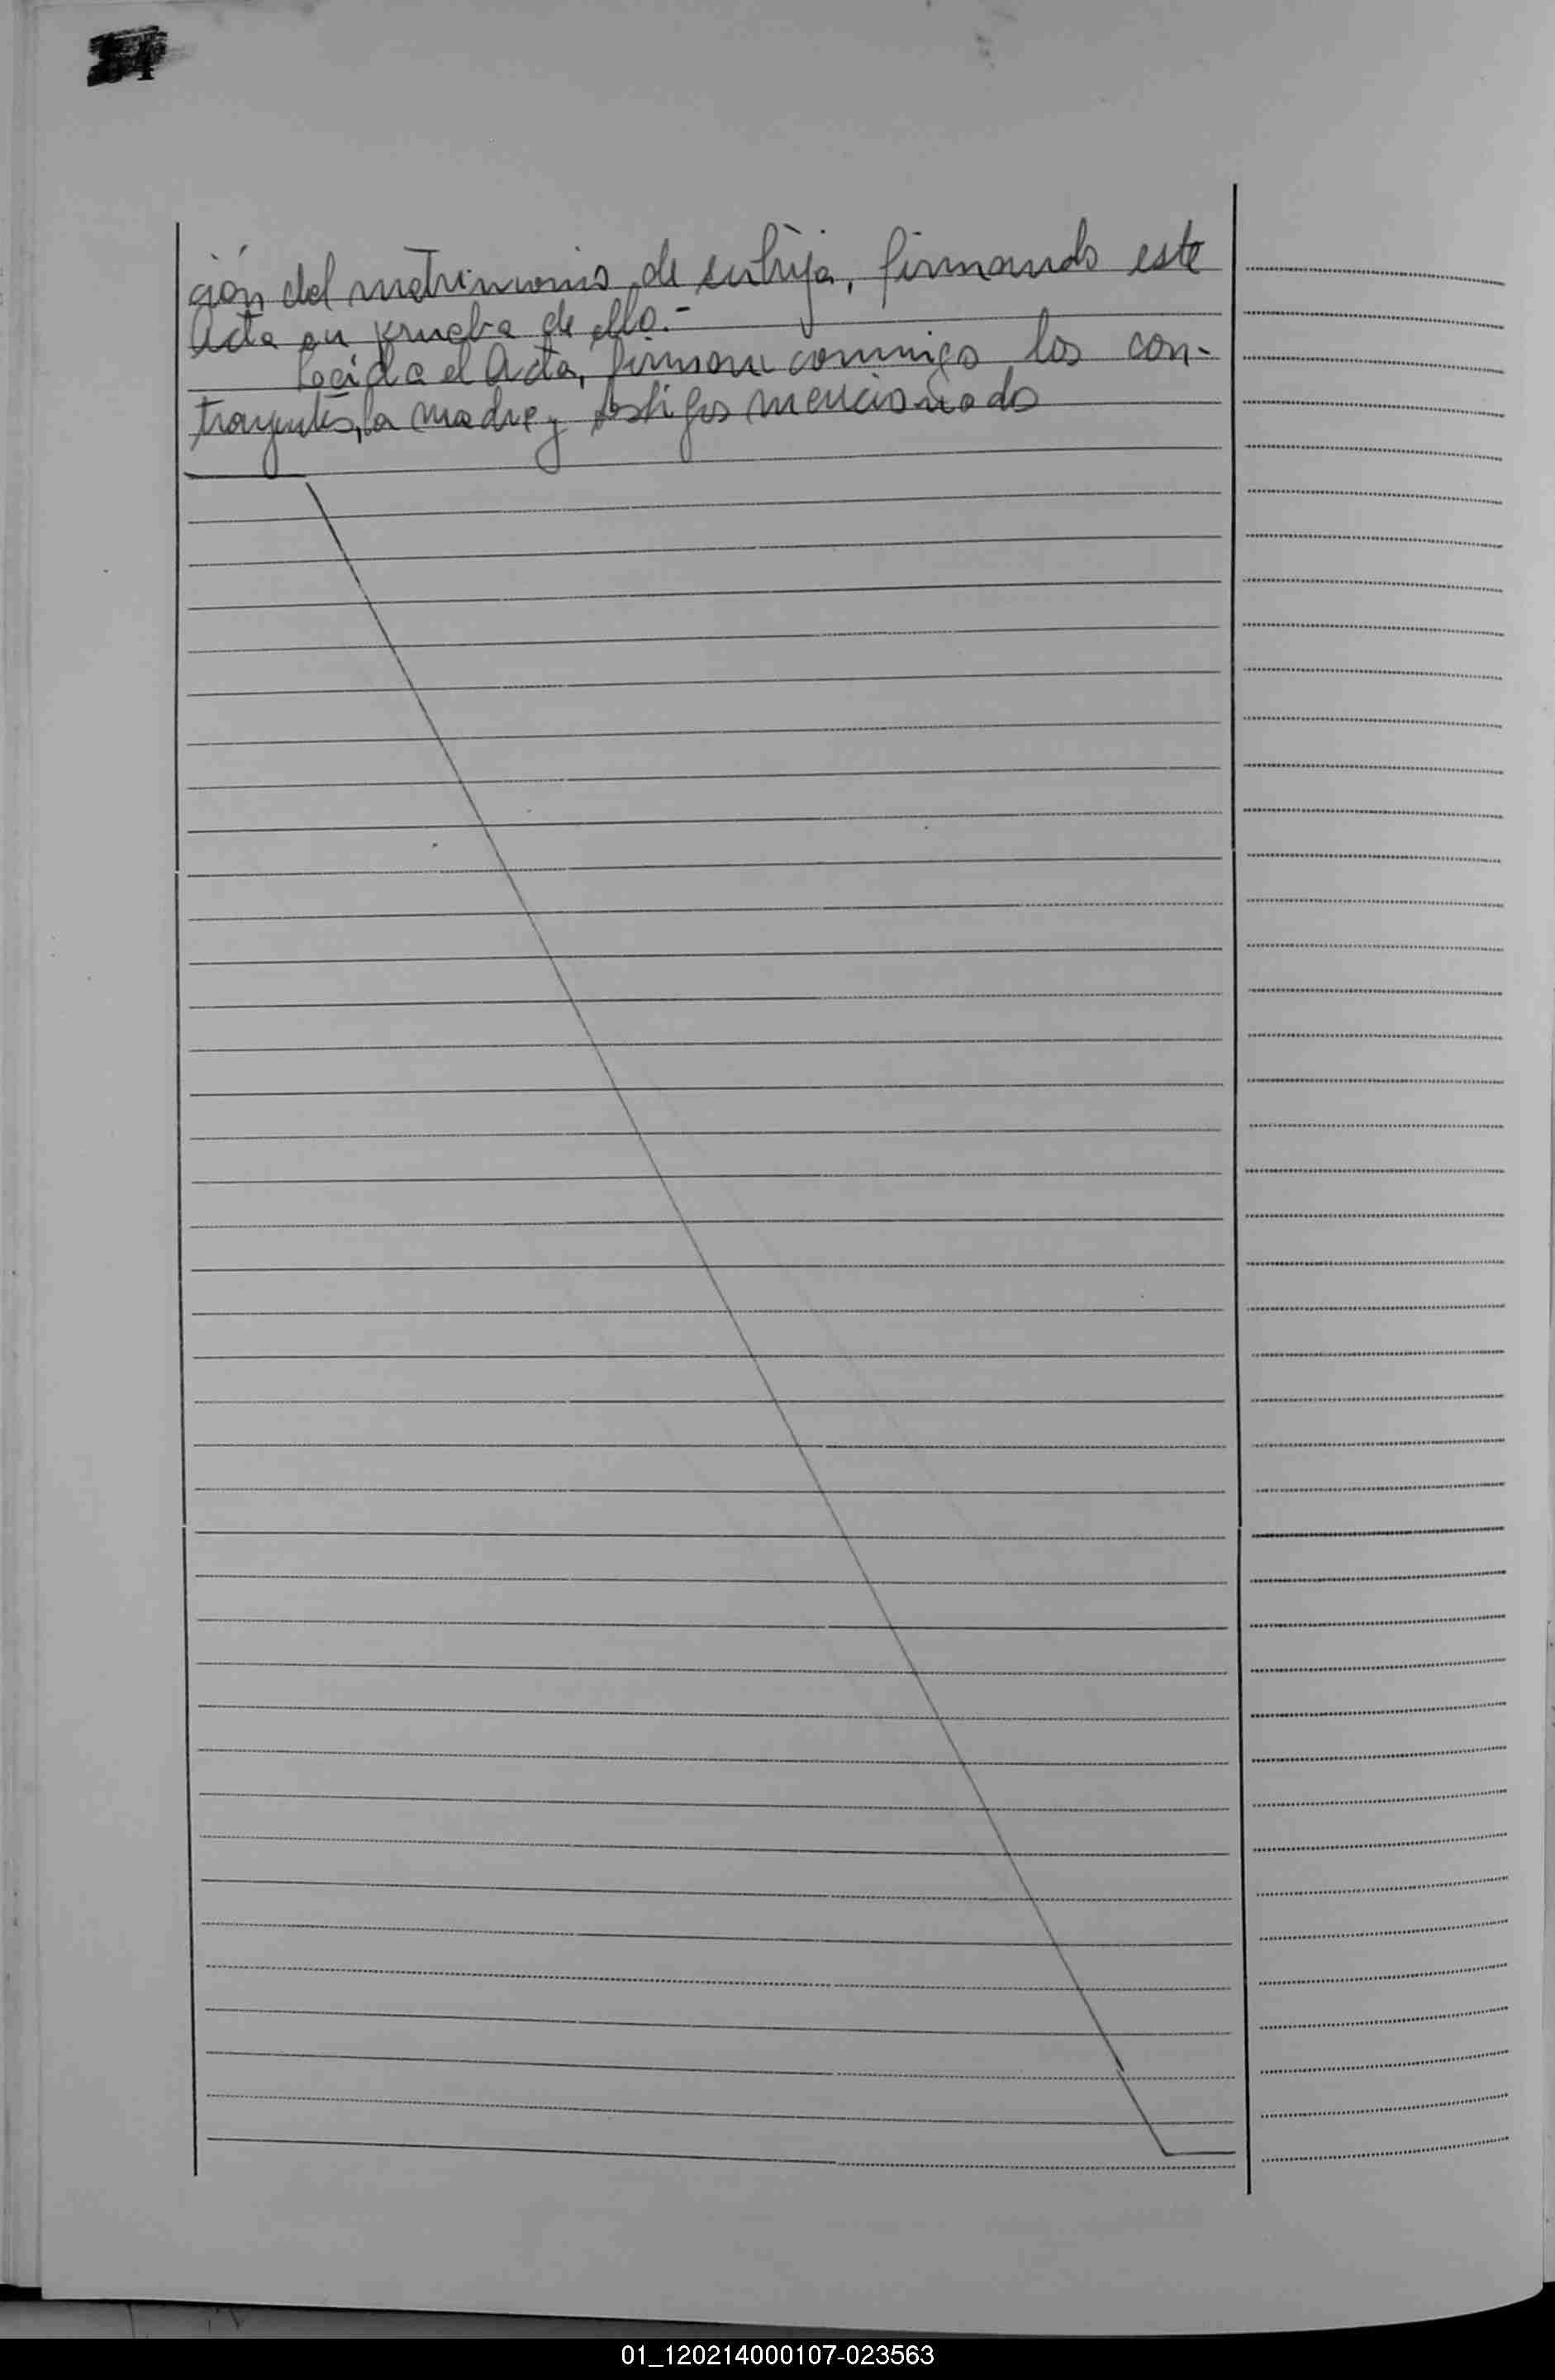 ción del matrimonio de su hija, firmando este
Acta en prueba de ello.-
Leída el Acta, firman conmigo los con-
trayentes, la madre y testigos mencionado
01_120214000107-023563